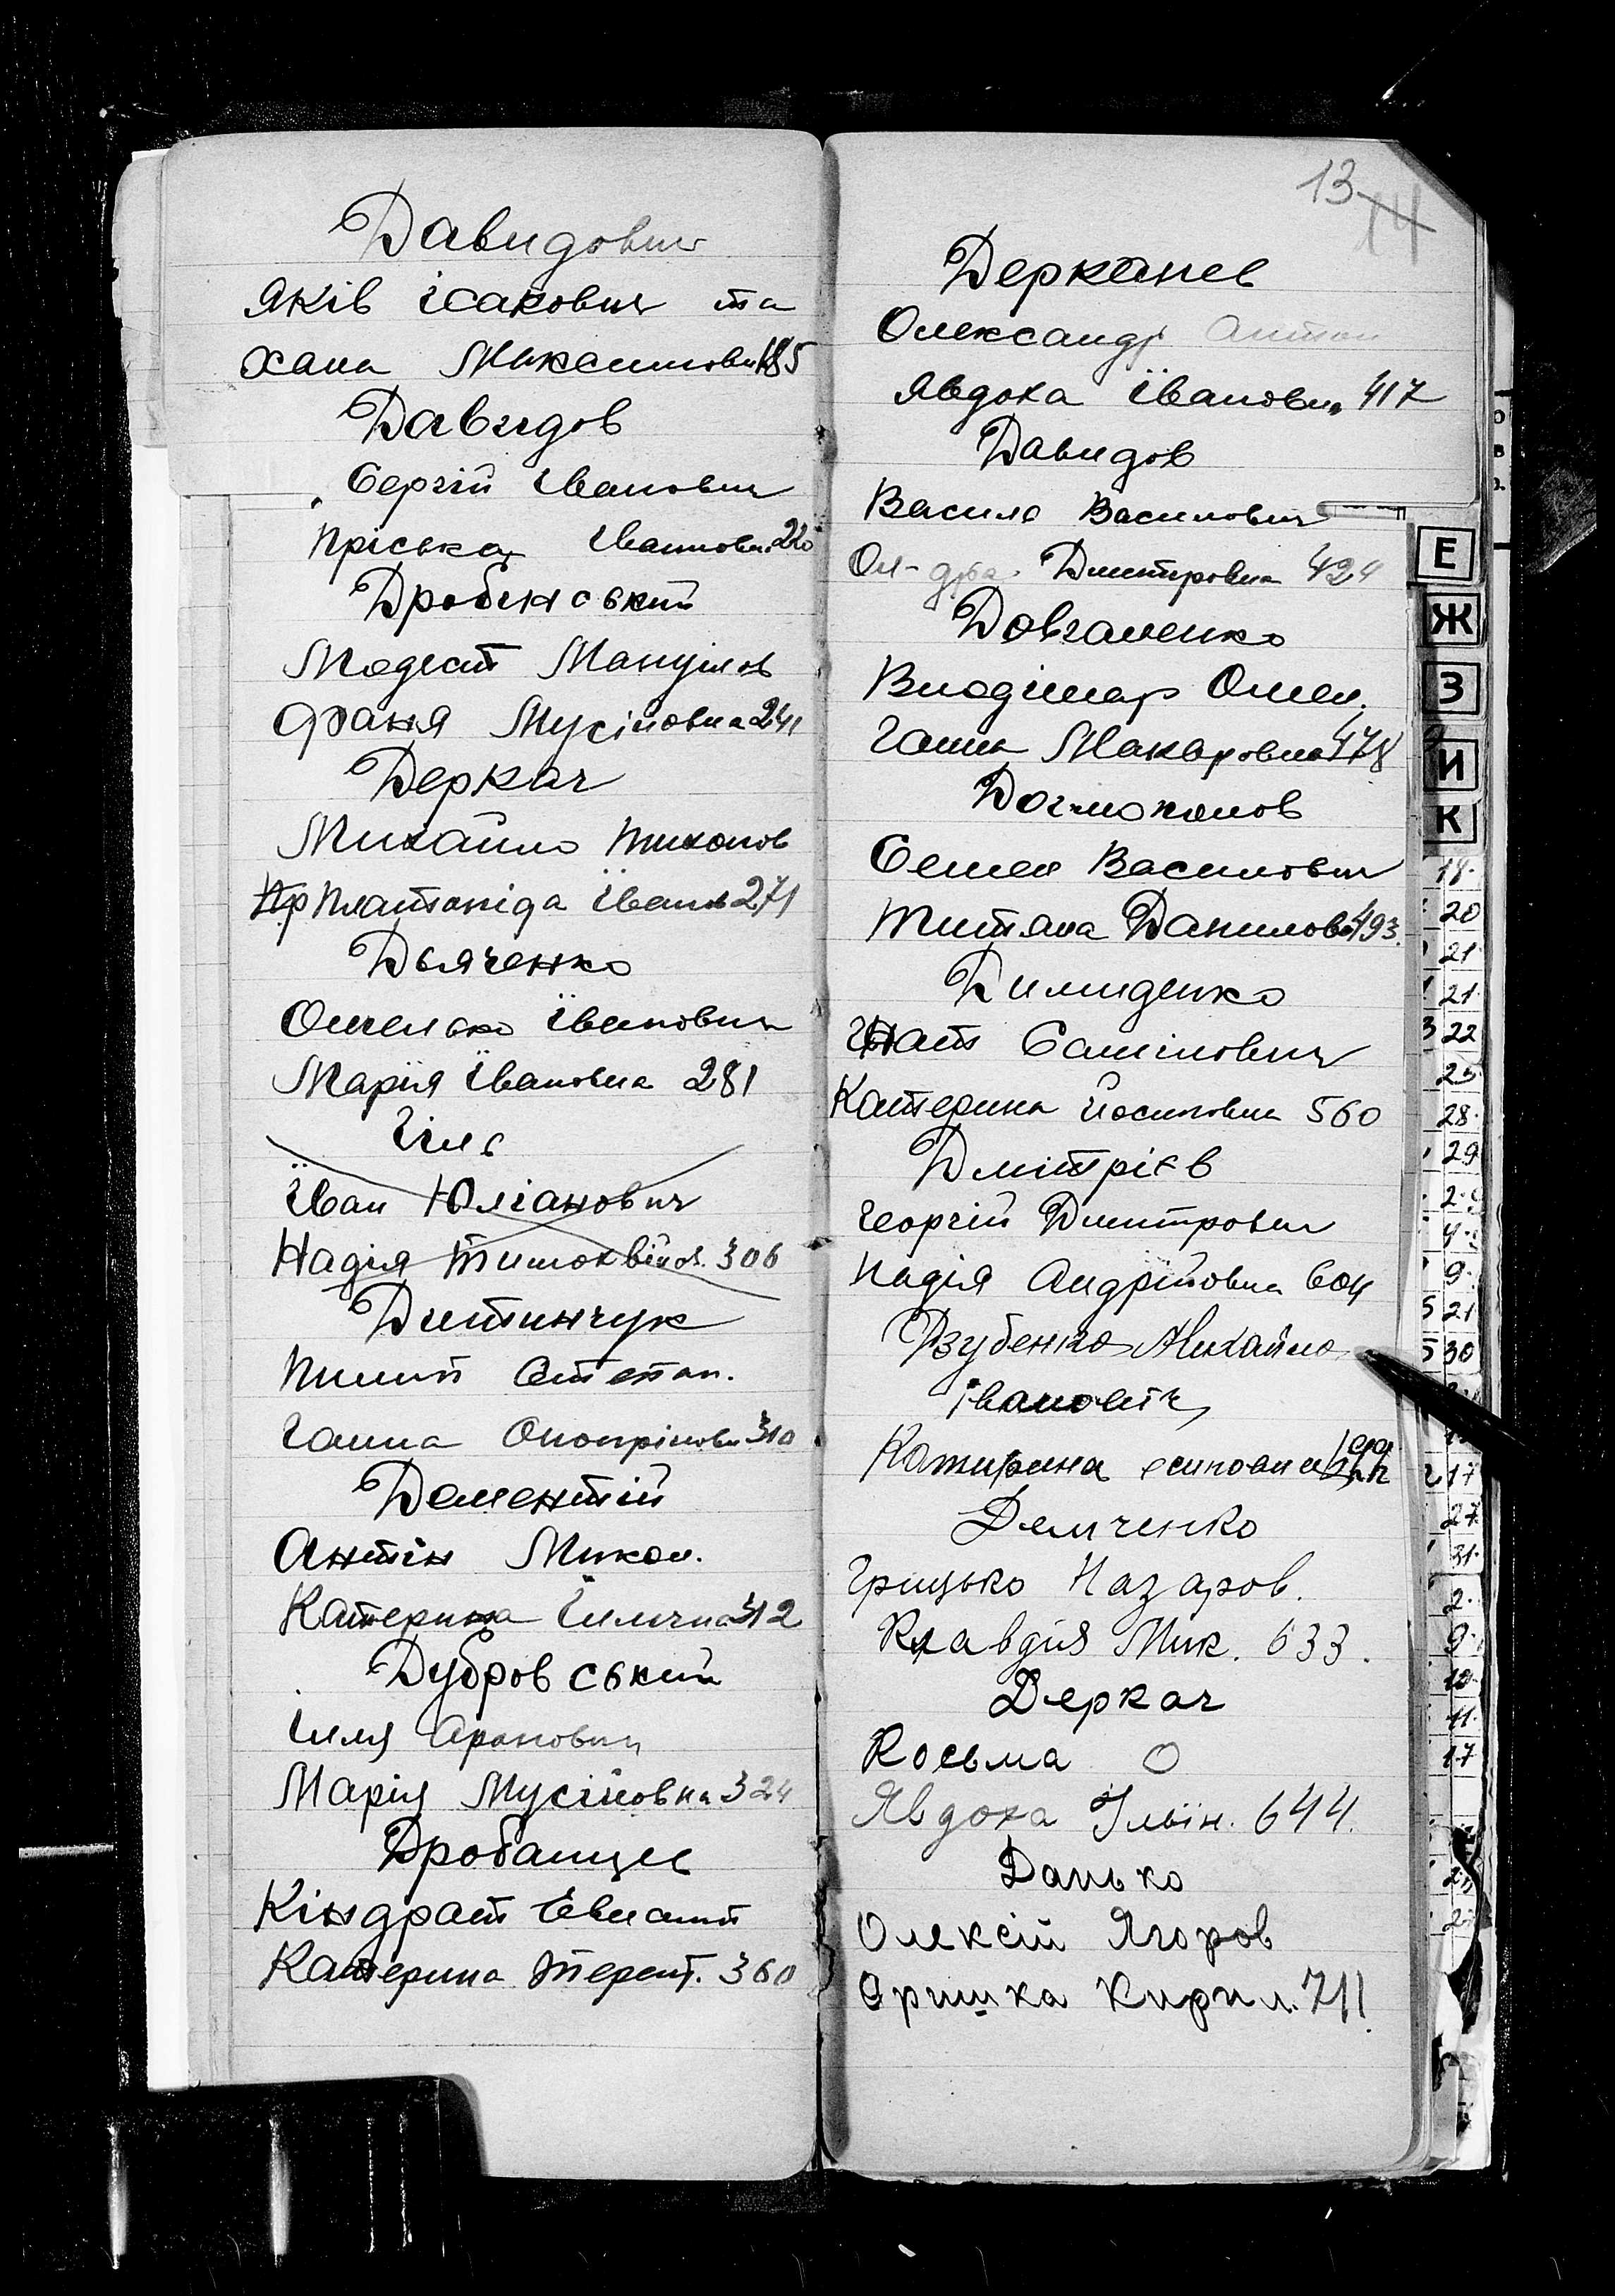 Давидович
Яків Ісакович та
Хана Максимовн 185
Давидов
Сергій Іванович
Пріська Івановн. 220
Дробинський
Модест Мануілов
Фаня Мусіповна 241
Деркач
Михайло Тихонов
Пр Платоніда Іванов 271
Дьяченко
Омелько Іванович
Марія Івановна 281
Гіль
Іван Юліанович
Надія Тимохвійов. 306
Дитинчук
Пилип Степан.
Ганна Оноприіовн 310
Дементій
Антін Микол.
Катерина Іллічна 312
Дубровський
Ілля Аронович
Марія Мусійовна 324
Дробанцев
Кіндрат Евламп
Катерина Терент. 360
13 14
Дерканев
Олександр Антон
Явдоха Івановна 417
Давидов
Василь Василович
Ол-дра. Дмитровна 424
Довгаленко
Влодімар Омел.
Ганна Макаровна 478
Догмоканов
Семен Василович
Титяна Данилов 493.
Димиденко
Гнат Самілович
Катерина Йосиповна 560
Дмітріев
Георгій Дмитрович
Надія Андрійовна 604
Дзубенко Михайло
Івановіч
Катирина есиповна
Демченко
Грицько Назаров.
Клавдія Мик. 633.
Деркач
Косьма О
Явдоха Ільїн. 644.
Данько
Олексій Ягоров
Оришка Кирил. 711.
Е
Ж
З
И
К